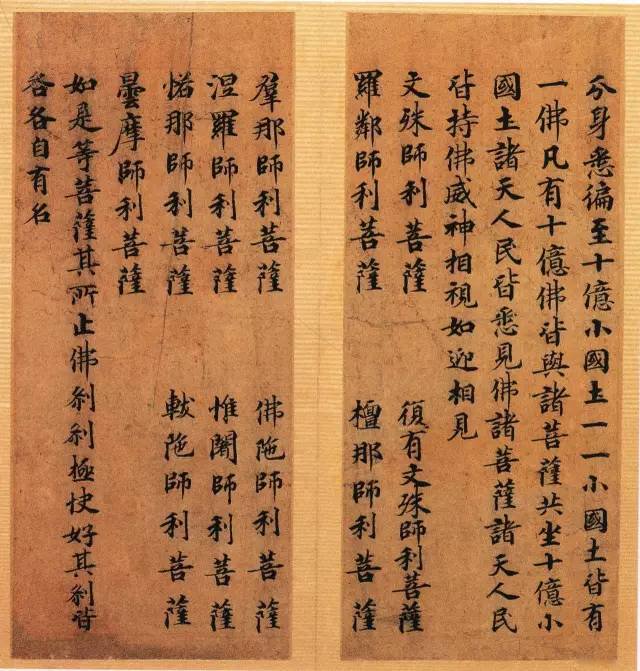 分身悉徧至十億小國土一一小國土皆有
一佛凡有十億佛皆與諸菩薩共坐十億小
國土諸天人民皆悉見佛諸菩薩諸天人民
皆持佛威神相視如迎相見
文殊師利菩薩 復有文殊師利菩薩
羅鄰師利菩薩 檀那師利菩薩
羣那師利菩薩 佛陁師利菩薩
涅羅師利菩薩 惟闍師利菩薩
那師利菩薩 軷陁師利菩薩
曇摩師利菩薩
如是等菩薩其所止佛剎剎極快好其剎皆
各各自有名